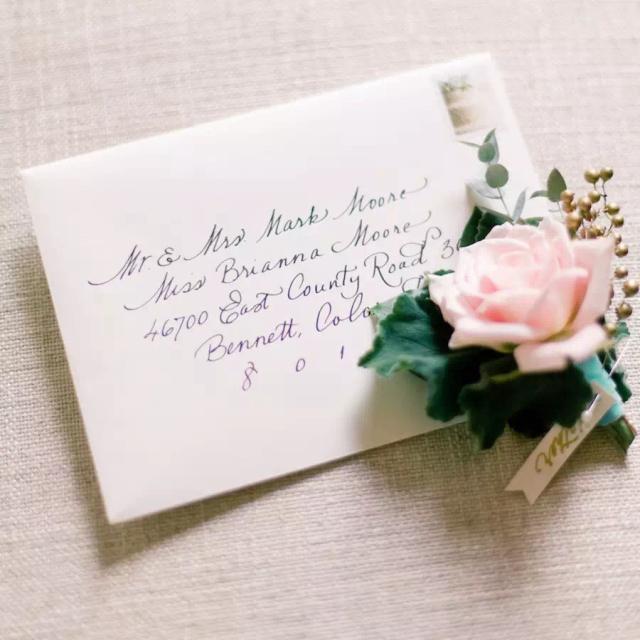 Mr. & Mrs. Mark Moore
Miss Brianna Moore
46700 East County Road 3
Bennett, Colo
8 0 1